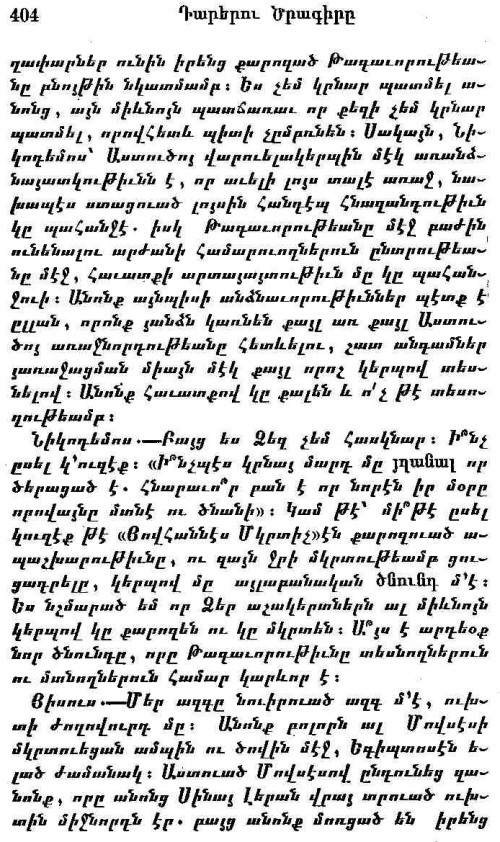 404 Դարերու Ծրագիրը
ղափարներ ունին իրենց քարոզած Թագաւորութեա-
նը բնոյթին նկատմամբ: Ես չեմ կրնար պատմել ա-
նոնց, այն միևնոյն պատճառաւ որ քեզի չեմ կրնար
պատմել, որովհետև պիտի չըմբռնեն: Սակայն, Նի-
կոդեմոս՝ Աստուծոյ վարուելակերպին մէկ առանձ-
նայատկութիւնն է, որ աւելի լոյս տալէ առաջ, նա-
խապէս ստացուած լոյսին հանդէպ հնազանդութիւն
կը պահանջէ. իսկ Թագաւորութեանը մէջ բաժին
ունենալու արժանի համարուողներուն ընտրութեա-
նը մէջ, հաւատքի արտայայտութիւն մը կը պահան-
ջուի: Անոնք այնպիսի անձնաւորութիւններ պէտք է
ըլլան, որոնք յանձն կառնեն քայլ առ քայլ Աստու-
ծոյ առաջնորդութեանը հետևելու, շատ անգամներ
յառաջացման միայն մէկ քայլ որոշ կերպով տես-
նելով: Անոնք հաւատքով կը քալեն և ո՛չ թէ տեսո-
ղութեամբ:
Նիկոդեմոս.—Բայց ես Ձեզ չեմ հասկնար: Ի՞նչ
ըսել կ՚ուզէք: «Ի՞նչպէս կրնայ մարդ մը յղանալ որ
ծերացած է. հնարաւո՞ր բան է որ նորէն իր մօրը
որովայնը մտնէ ու ծնանի»: Կամ թէ՝ մի՞թէ ըսել
կուզէք թէ «Յովհաննէս Մկրտիչ»էն քարոզուած ա-
պաշխարութիւնը, ու զայն ջրի մկրտութեամբ ցու-
ցադրելը, կերպով մը այլաբանական ծնունդ մ՚է:
Ես նշմարած եմ որ Ձեր աշակերտներն ալ միևնոյն
կերպով կը քարոզեն ու կը մկրտեն: Ա՞յս է արդեօք
նոր ծնունդը, որը Թագաւորութիւնը տեսնողներուն
ու մտնողներուն համար կարևոր է:
Յիսուս.—Մեր ազգը նուիրուած ազգ մ՚է, ուխ-
տի ժողովուրդ մը: Անոնք բոլորն ալ Մովսէսի
մկրտուեցան ամպին ու ծովին մէջ, Եգիպտոսէն ե-
լած ժամանակ: Աստուած Մովսէսով ընդունեց զա-
նոնք, որը անոնց Սինայ Լերան վրայ տրուած ուխ-
տին միջնորդն էր. բայց անոնք մոռցած են իրենց